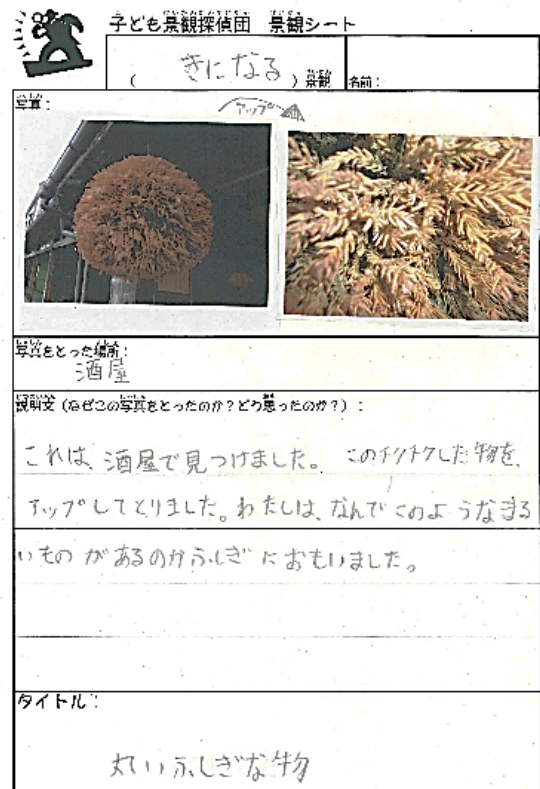 子ども景観探偵団 景観シート
( きになる )景観
名前:
写真:
アップ
写真をとった場所:
酒屋
説明文(なぜこの写真をとったのか?どう思ったのか?):
これは、酒屋で見つけました。このチクチクした物を、
アップしてとりました。わたしは、なんでこのようなまる
いものがあるのかふしぎにおもいました。
タイトル:
丸いふしぎな物